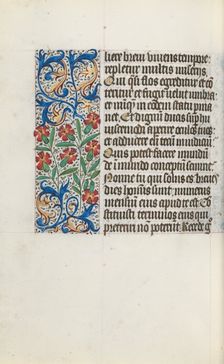 liere breui viuens tempore
repletur multis miserijs.
Qui quasi flos egreditur et co
teritur et fugit velut umbra:
et nunq in eodem statu perma
net. Et dignum ducis super hu
iuscemodi aperire oculos tuos
et adducere eum tecum iudicium
Quis potest facere mundum
de immundo conceptum semine
Nonne tu qui solus es breues
dies hominis sunt: numerus
mensium eius apud te est
stituisti terminos eius qui
preteriri no poterunt Recede